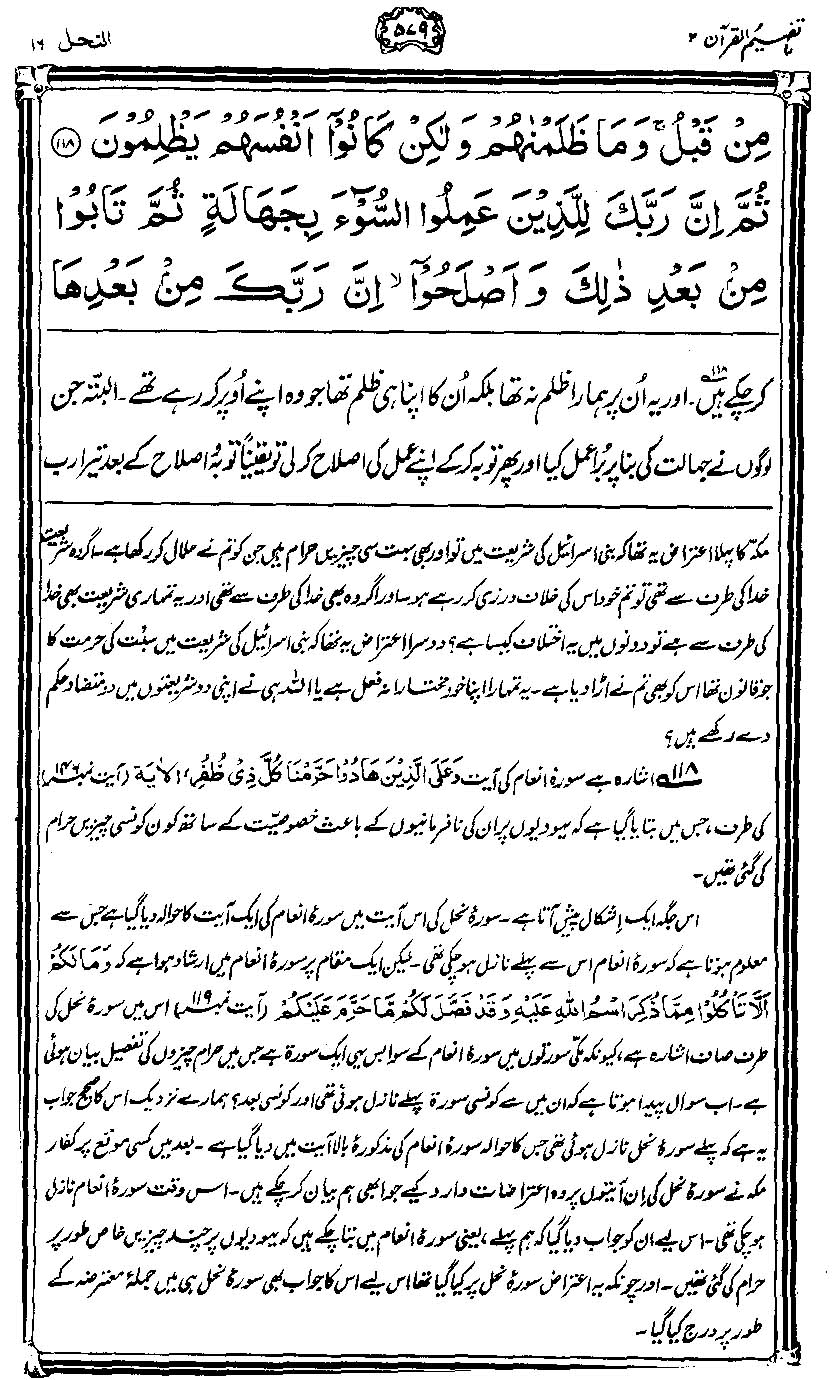 تفہیم القرآن ۲
۵۷۹
النحل ۱۶
مِنْ قَبْلُ ۚ وَمَا ظَلَمْنٰهُمْ وَلٰكِنْ كَانُوْٓا اَنْفُسَهُمْ يَظْلِمُوْنَ ﴿۱۱۸﴾
ثُمَّ اِنَّ رَبَّكَ لِلَّذِيْنَ عَمِلُوا السُّوْٓءَ بِجَهَالَةٍ ثُمَّ تَابُوْا
مِنْ بَعْدِ ذٰلِكَ وَاَصْلَحُوْٓا ۙ اِنَّ رَبَّكَ مِنْ بَعْدِهَا
کر چکے ہیں۱۱۸۔ اور یہ اُن پر ہمارا ظلم نہ تھا بلکہ اُن کا اپنا ہی ظلم تھا جو وہ اپنے اُوپر کر رہے تھے۔ البتّہ جن
لوگوں نے جہالت کی بنا پر بُرا عمل کیا اور پھر توبہ کر کے اپنے عمل کی اصلاح کر لی تو یقیناً توبہ و اصلاح کے بعد تیرا رب
مکّہ کا پہلا اعتراض یہ تھا کہ بنی اسرائیل کی شریعت میں تو اور بھی بہت سی چیزیں حرام ہیں جن کو تم نے حلال کر رکھا ہے۔ اگر وہ شریعت
خدا کی طرف سے تھی تو تم خود اس کی خلاف ورزی کر رہے ہو۔ اور اگر وہ بھی خدا کی طرف سے تھی اور یہ تمہاری شریعت بھی خدا
کی طرف سے ہے تو دونوں میں یہ اختلاف کیسا ہے؟ دوسرا اعتراض یہ تھا کہ بنی اسرائیل کی شریعت میں سبْت کی حرمت کا
جو قانون تھا اس کو بھی تم نے اڑا دیا ہے۔ یہ تمہارا اپنا خود مختارانہ فعل ہے یا اللہ ہی نے اپنی دو شریعتوں میں دو متضاد حکم
دے رکھے ہیں؟
۱۱۸ اشارہ ہے سورۂ انعام کی آیت وَعَلَی الَّذِیْنَ ھَادُوْا حَرَّمْنَا کُلَّ ذِیْ ظُفُرٍ، الاٰیۃ (آیت نمبر ۱۴۶)
کی طرف، جس میں بتایا گیا ہے کہ یہودیوں پر ان کی نافرمانیوں کے باعث خصوصیّت کے ساتھ کون کونسی چیزیں حرام
کی گئی تھیں۔
اس جگہ ایک اِشکال پیش آتا ہے۔ سورۂ نحل کی اس آیت میں سورۂ انعام کی ایک آیت کا حوالہ دیا گیا ہے جس سے
معلوم ہوتا ہے کہ سورۂ انعام اس سے پہلے نازل ہو چکی تھی۔ لیکن ایک مقام پر سورۂ انعام میں ارشاد ہوا ہے کہ وَمَا لَکُمْ
اَلَّا تَاْکُلُوْا مِمَّا ذُکِرَ اسْمُ اللّٰہِ عَلَیْہِ وَقَدْ فَصَّلَ لَکُمْ مَّا حَرَّمَ عَلَیْکُمْ (آیت نمبر ۱۱۹) اس میں سورۂ نحل کی
طرف صاف اشارہ ہے، کیونکہ مکّی سورتوں میں سورۂ انعام کے سوا بس یہی ایک سورۃ ہے جس میں حرام چیزوں کی تفصیل بیان ہوئی
ہے۔ اب سوال پیدا ہوتا ہے کہ ان میں سے کونسی سورۃ پہلے نازل ہوئی تھی اور کونسی بعد؟ ہمارے نزدیک اس کا صحیح جواب
یہ ہے کہ پہلے سورۂ نحل نازل ہوئی تھی جس کا حوالہ سورۂ انعام کی مذکورۂ بالا آیت میں دیا گیا ہے۔ بعد میں کسی موقع پر کفار
مکہ نے سورۂ نحل کی اِن آیتوں پر وہ اعتراضات وارد کیے جو ابھی ہم بیان کر چکے ہیں۔ اس وقت سورۂ انعام نازل
ہو چکی تھی۔ اس لیے ان کو جواب دیا گیا کہ ہم پہلے، یعنی سورۂ انعام میں بتا چکے ہیں کہ یہودیوں پر چند چیزیں خاص طور پر
حرام کی گئی تھیں۔ اور چونکہ یہ اعتراض سورۂ نحل پر کیا گیا تھا اس لیے اس کا جواب بھی سورۂ نحل ہی میں جملۂ معترضہ کے
طور پر درج کیا گیا۔